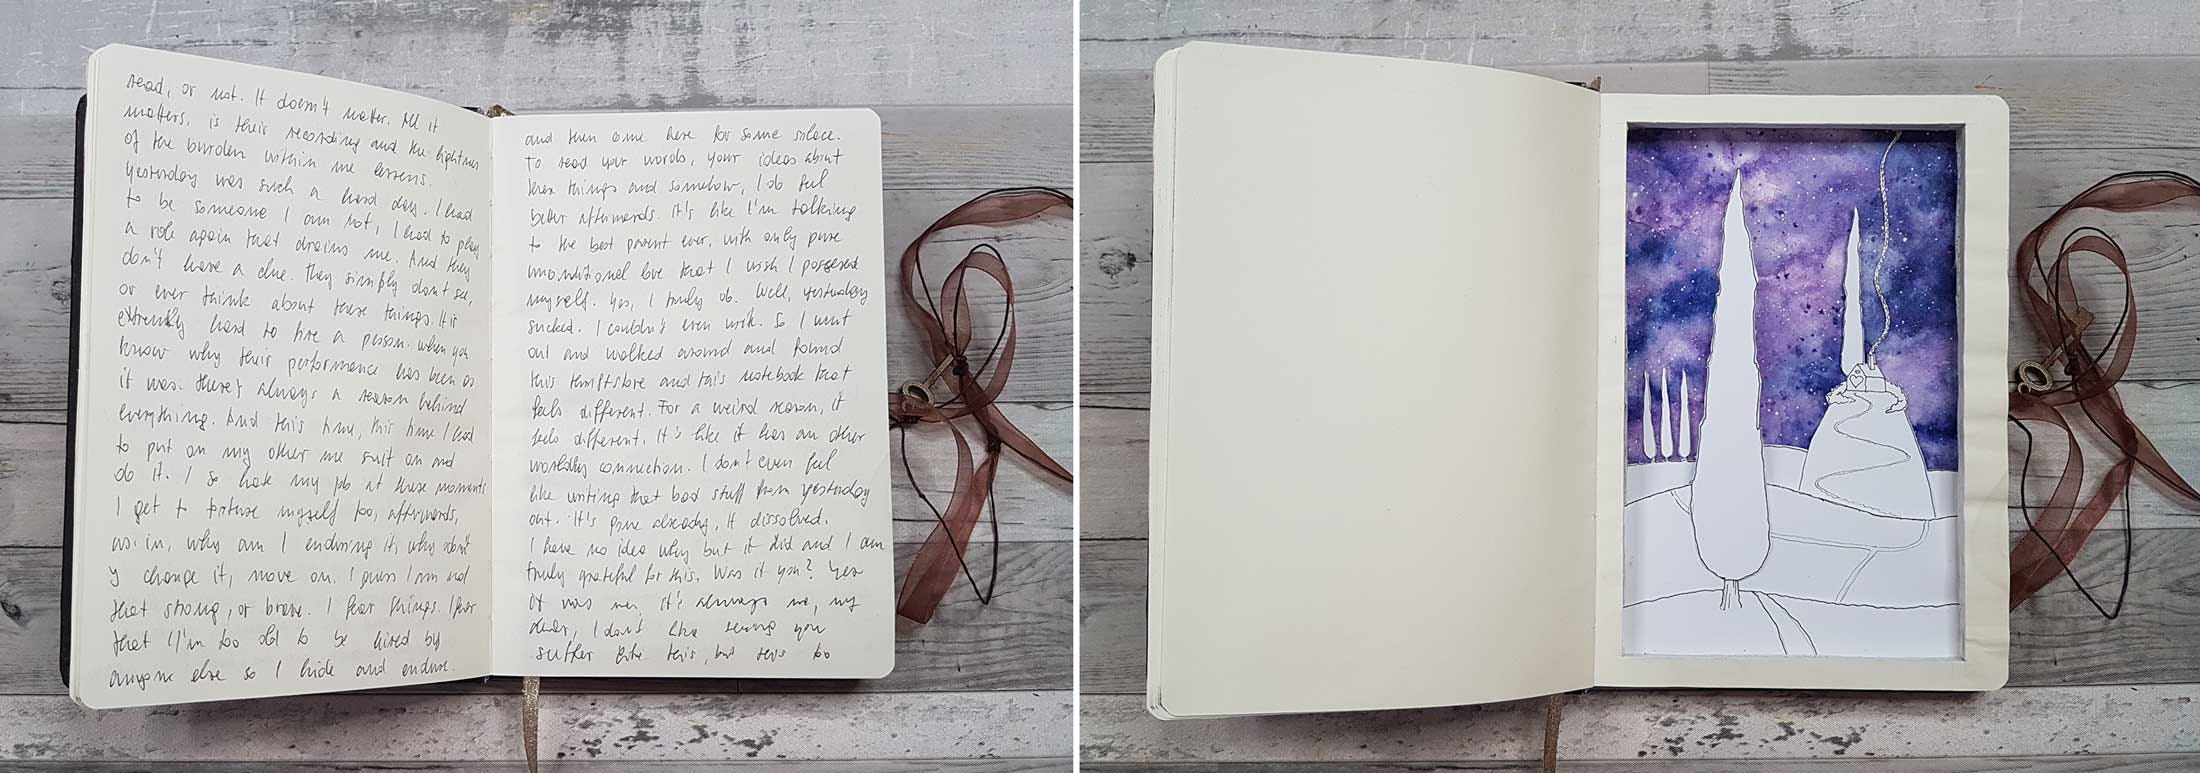 read, or not. It doesn't matter. All it
matters, is their recording and the lightness
of the burden within me lessens.
Yesterday was such a hard day. I had
to be someone I am not, I had to play
a role again that drains me. And they
don't have a clue. They simply don't see,
or ever think about these things. It is
extremely hard to fire a person. when you
know why their performance has been as
it was. there's always a reason behind
everything. And this time, this time I had
to put on my other me suit on and
do it. I so hate my job at these moments
I get to torture myself too, afterwards,
as in, why am I enduring it, why don't
I change it, move on. I guess I'm not
that strong, or brave. I fear things. I fear
that I'm too old to be hired by
anyone else so I hide and endure.
and then come here for some solace.
To read your words, your ideas about
these things and somehow, I do feel
better afterwards. it's like I'm talking
to the best parent ever, with only pure
unconditional love that I wish I possessed
myself. Yes, I truly do. Well, yesterday
sucked. I couldn't even work. So I went
out and walked around and found
this thriftstore and this notebook that
feels different. For a weird reason, it
feels different. It's like it has an other
worldly connection. I don't even feel
like writing that bad stuff from yesterday
out. It's gone already, it dissolved.
I have no idea why but it did and I am
truly grateful for this. Was it you? Yes
It was me, it's always me, my
dear, I don't like seeing you
suffer like this, but this too